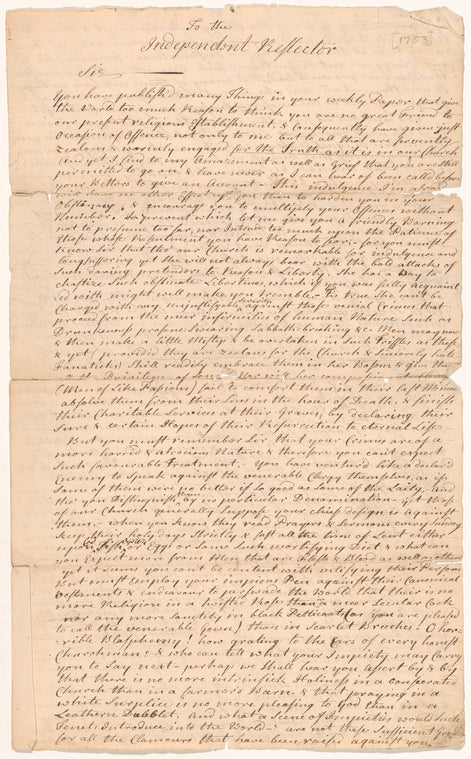 To the
[1753]
Independent Reflector
Sir
You have published many Things in your weekly Paper that give
the World too much Reason to think you are no great Friend to
our present religious Establishment, & Consequently have given just
Occasion of Offence, not only to me but to all that are fervently
zealous & warmly engaged for the Truth as it is in our Church
and yet I find to my Amazement as well as Grief that you are still
permitted to go on, & have never as I can hear of been called before
your Betters to give an Account - This indulgence I'm afraid
will have no other Effect upon you than to harden you in your
Obstinacy, & encourage you to multiply your Offences without
Number. To prevent which let me give you a friendly
not to presume too far, nor Intrude too much upon the Patience of
those whose Resentment you have Reason to fear: for you must
Know Sir that tho' our Church is remarkable for Indulgence and
longsuffering yet she will not always bear with the bold attacks of
Such daring pretenders to Reason & Liberty. She has a Way to
chastize Such obstinate Libertines, which if you was fully acquaint
ed with might well make you tremble. Tis true She can't be
Charg'd with any against those venial Crimes that
proceed from the meer infirmities of human Nature Such as
Drunkenness profane Swearing Sabbath breaking &c. Men may now
& then make a little Misstep & be overtaken in Such Trifles as those
& yet (provided they are zealous for the Church & Sincerely hate
Fanaticks) She'll readily embrace them in her Bosom & give them
(Men of like Passions) fail to comfort them in their last Moments
absolve them from their Sins in the hour of Death, & finish
their Charitable Services at their Graves, by declaring their
Sure & certain Hopes of their Resurrection to eternal Life
But you must remember Sir that your Crimes are of a
more horrid & atrocious Nature & therefore you can't expect
Such favourable Treatment. You have ventur'd like a declar'd
Enemy to Speak against the venerable Clergy themselves, as if
Some of them were no better or so good as Some of the Laity, and
tho' you Distinguish them by no particular Denomination yet those
of our Church generally Suppose your chief design is against
them - when you know they read Prayers & Sermons every Sunday
keep their holy days Strictly & fast all the time of Lent either
upon Fish, or Eggs or Some Such mortifying Diet & what can
you Expect more from Men that are Flesh & blood as well as others
yet it seems you can't be content with vilifying their Persons
but must Employ your impious Pen against their Canonical
Vestments & endeavour to perswade the World that their is no
more Religion in a twisted Rose than a meer Secular Cock
nor any more Sanctity in black Petticoats (for you are pleased
to call the venerable Gown) than in Scarlet Breeches! O hor-
rible Blasphemy! how grating to the Ears of every honest
Churchman! & who can tell what your Impiety may Carry
you to Say next - perhaps we Shall hear you assert by & by
that there is no more intrinsick Holiness in a consecrated
Church than in a farmer's Barn & that praying in a
white Surplice is no more pleasing to God than in a
Leathern Dubblet, and what a Scene of Impieties would Such
Tenets introduce into the World - are not these Sufficient
for all the Clamours that have been raised against you